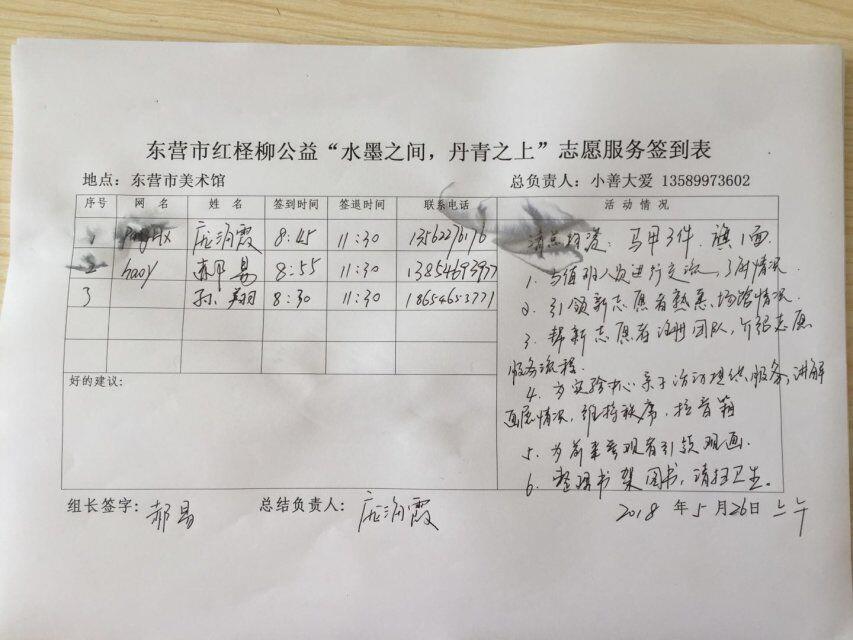 东营市红柽柳公益“水墨之间，丹青之上”志愿服务签到表
地点：东营市美术馆 总负责人：小善大爱 13589973602
序号 网 名 姓 名 签到时间 签退时间 联系电话 活 动 情 况
1 霞 8:45 11:30 清点物资：马甲3件．旗1面．
2 haoy 郝易 8:55 11:30 13854693977 1．与值班人员进行交流，了解情况．
3 孙翔 8:30 11:30 18654653771 2．引领新志愿者熟悉场馆情况．
3．帮新志愿者注册团队，介绍志愿
服务流程．
好的建议：
4．为实验中心亲子活动提供服务，讲解
画展情况，维持秩序，拉音箱
5．为前来参观者引领观画．
6．整理书架图书，清扫卫生．
组长签字：郝易 总结负责人：霞
2018 年5月26日 上午